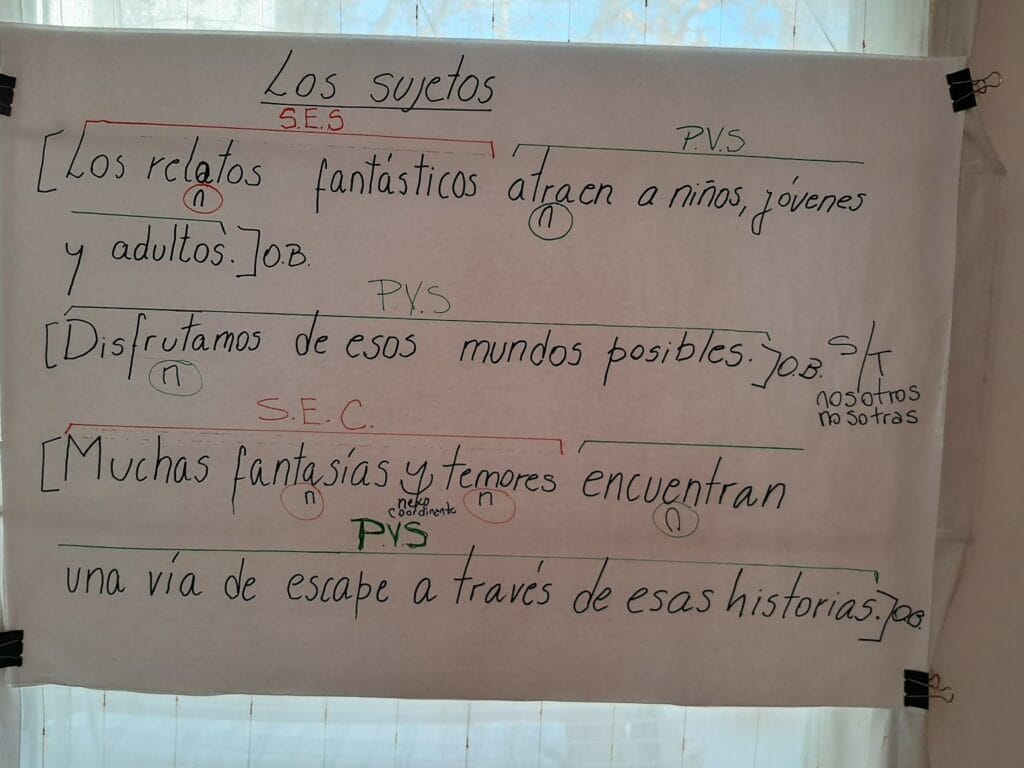 Los sujetos
S.E.S
P.V.S
[Los relatos fantásticos atraen a niños, jóvenes
n n
y adultos.]O.B.
P.V.S
[Disfrutamos de esos mundos posibles.]O.B. S/T
n
nosotros
nosotras
S.E.C.
[Muchas fantasías y temores encuentran
n n n
nexo
coordinante
P.V.S
una vía de escape a través de esas historias.]O.B.